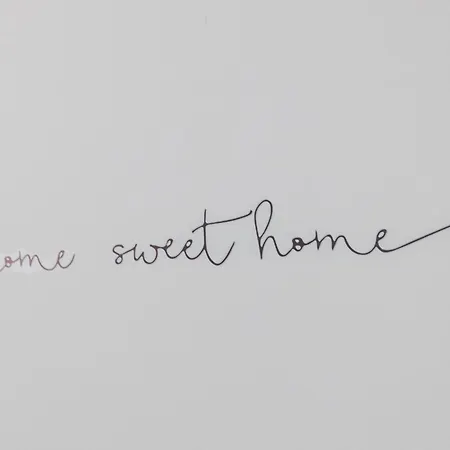 ome sweet home